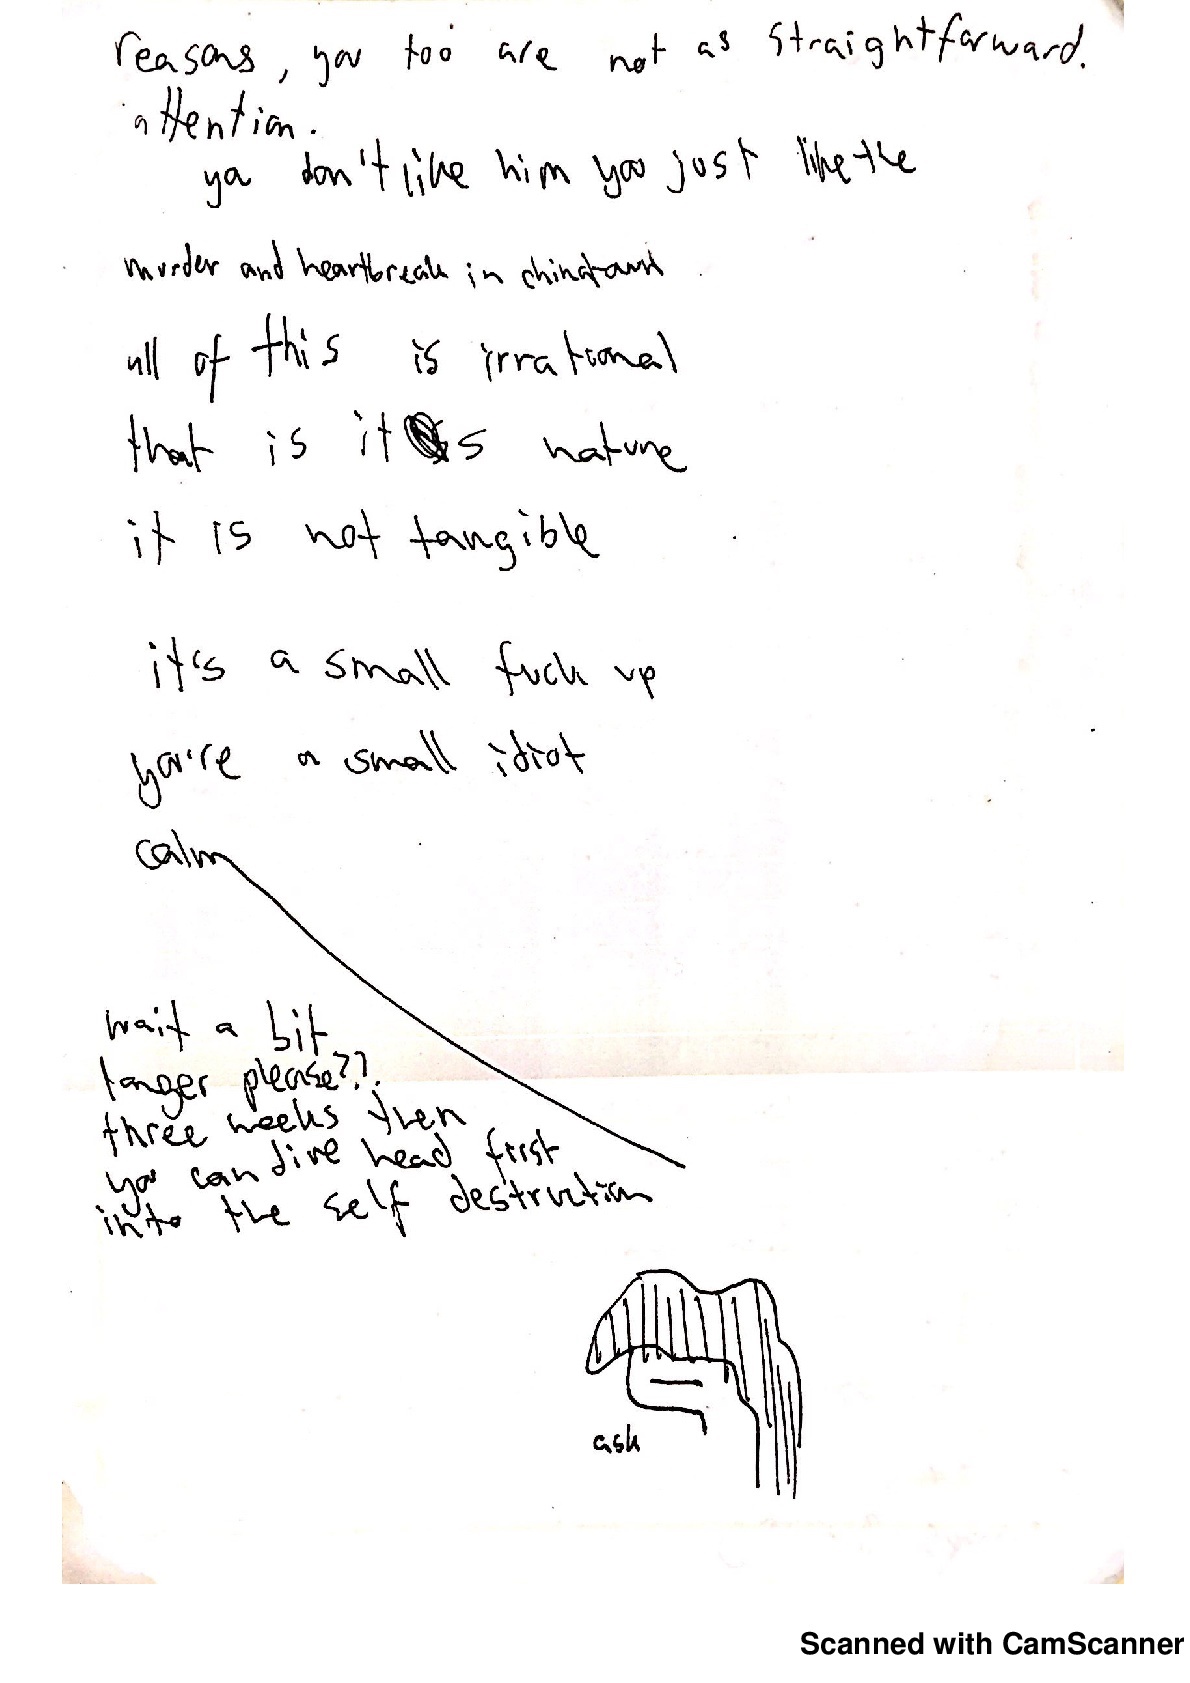 reasons, you too are not as straightforward.
attention.
ya don't like him you just like the
murder and heartbreak in chinatown
all of this is irrational
that is its nature
it is not tangible
it's a small fuck up
you're a small idiot
calm
wait a bit
longer please??
three weeks then
you can dive head first
into the self destruction
ask
Scanned with CamScanner